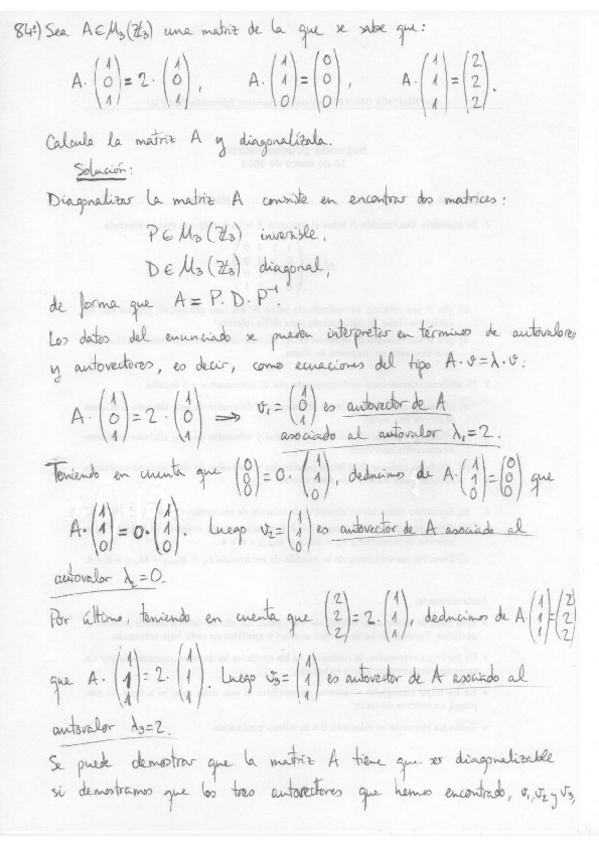 84º) Sea A∈M₃(ℤ₃) una matriz de la que se sabe que:
A·(1 0 1) = 2·(1 0 1), A·(1 1 0) = (0 0 0), A·(1 1 1) = (2 2 2).
Calcula la matriz A y diagonalízala.
Solución:
Diagonalizar la matriz A consiste en encontrar dos matrices:
P∈M₃(ℤ₃) inversible,
D∈M₃(ℤ₃) diagonal,
de forma que A = P·D·P⁻¹.
Los datos del enunciado se pueden interpretar en términos de autovalores
y autovectores, es decir, como ecuaciones del tipo A·v=λ·v:
A·(1 0 1) = 2·(1 0 1) ⟹ v₁ = (1 0 1) es autovector de A
asociado al autovalor λ₁=2.
Teniendo en cuenta que (0 0 0) = 0·(1 1 0), deducimos de A·(1 1 0) = (0 0 0) que
A·(1 1 0) = 0·(1 1 0). Luego v₂ = (1 1 0) es autovector de A asociado al
autovalor λ₂=0.
Por último, teniendo en cuenta que (2 2 2) = 2·(1 1 1), deducimos de A·(1 1 1) = (2 2 2)
que A·(1 1 1) = 2·(1 1 1). Luego v₃ = (1 1 1) es autovector de A asociado al
autovalor λ₃=2.
Se puede demostrar que la matriz A tiene que ser diagonalizable
si demostramos que los tres autovectores que hemos encontrado, v₁, v₂ y v₃,